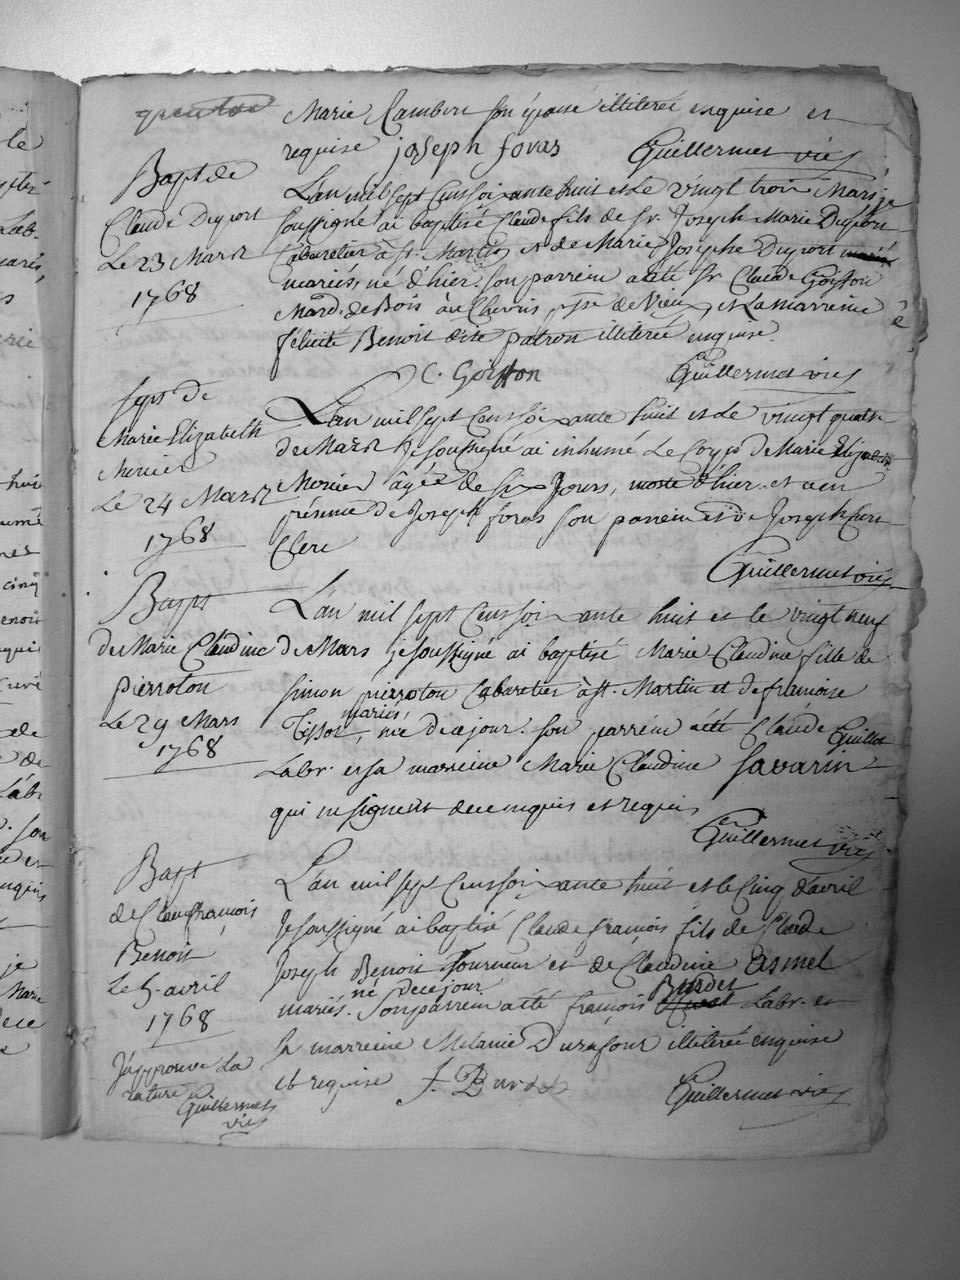 Marie Cambon son épouse illiterée enquise et
requise joseph foras Guillermet vic
Bapt de
Claude Duport
Le 23 Mars
1768
L'an mil sept cens soixante huit et le vingt trois Mars je
soussigné ai baptisé Claude fils de Sr. Joseph Marie Duport
Cabaretier à St. Martin et de Marie Josephe Duport
mariés, né d'hier. Son parrein a été Sr Claude Goisson
March. de Bois et la marreine
felicité Benoit dite patron illiterée enquise.
C. Goisson Guillermet vic
Sept de
Marie Elizabeth
Monier
Le 24 Mars
1768
L'an mil sept cens soixante huit et le vingt quatre
de Mars je soussigné ai inhumé le corps de Marie Elizabeth
Monier âgée de six jours, morte d'hier, et a en
présence de Joseph foras son parrein et de Joseph
Clerc
Guillermet vic
Bapt
de Marie Claudine
pierroton
Le 29 Mars
1768
L'an mil sept cens soixante huit et le vingt neuf
de Mars je soussigné ai baptisé Marie Claudine fille de
Simon pierroton Cabaretier à St. Martin et de francoise
Tissot, mariés, née de ce jour. son parrein a été Claude Guillot
Labr. et sa marreine Marie Claudine Savarin
qui ne signent de ce enquis et requis
Guillermet vic
Bapt
de Clau francois
Benoit
Le 5 avril
1768
L'an mil sept cens soixante huit et le cinq d'avril
Je soussigné ai baptisé Claude francois fils de Claude
Joseph Benoit Tourneur et de Claudine Asmel
mariés. né de ce jour Son parrein a été francois Burdet Labr. et
sa marreine Melanie Durafour illiterée enquise
et requise J. Burdet Guillermet vic
J'approuve la
rature
Guillermet
vic